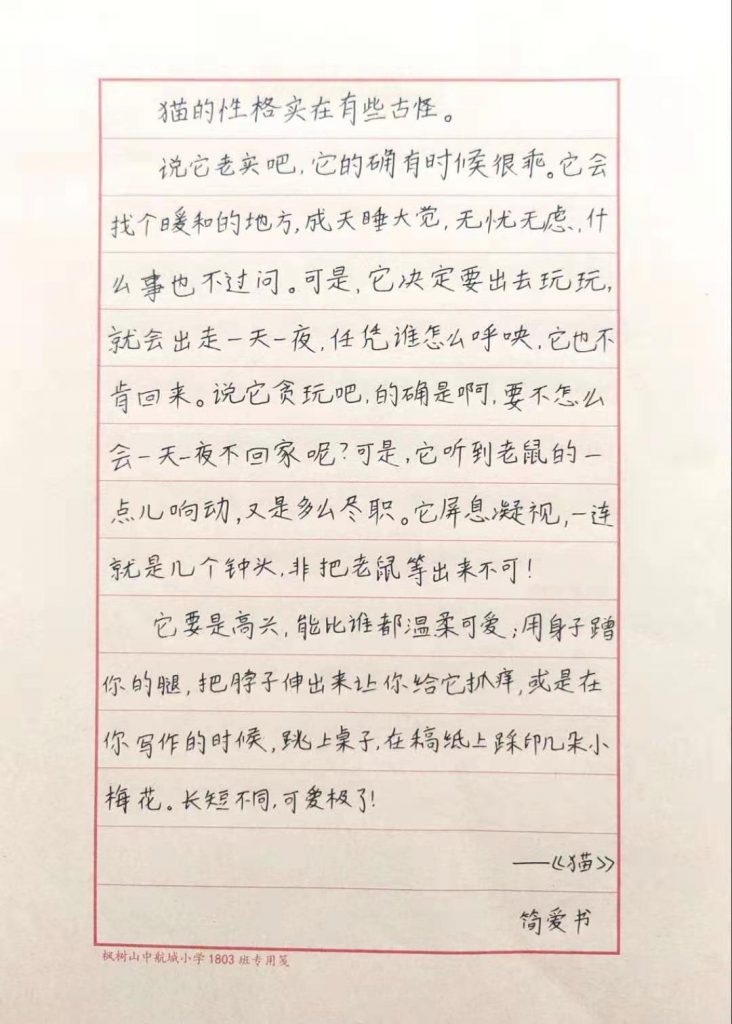 猫的性格实在有些古怪。
说它老实吧,它的确有时候很乖。它会
找个暖和的地方,成天睡大觉,无忧无虑,什
么事也不过问。可是,它决定要出去玩玩,
就会出走一天一夜,任凭谁怎么呼唤,它也不
肯回来。说它贪玩吧,的确是啊,要不怎么
会一天一夜不回家呢?可是,它听到老鼠的一
点儿响动,又是多么尽职。它屏息凝视,一连
就是几个钟头,非把老鼠等出来不可!
它要是高兴,能比谁都温柔可爱;用身子蹭
你的腿,把脖子伸出来让你给它抓痒,或是在
你写作的时候,跳上桌子,在稿纸上踩印几朵小
梅花。长短不同,可爱极了!
——《猫》
简爱书
枫树山中航城小学1803班专用笺